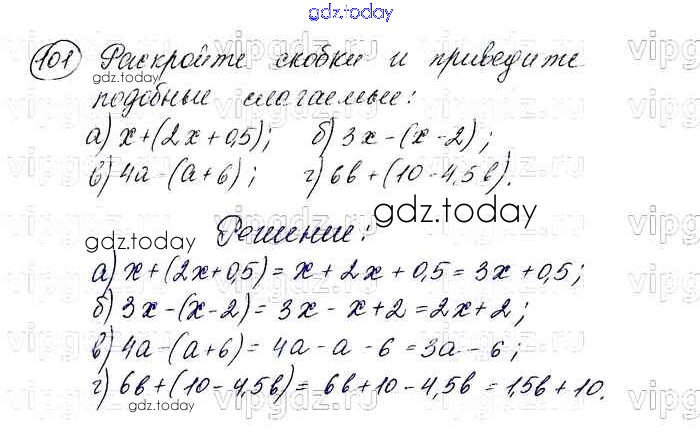 gdz.today
101 Раскройте скобки и приведите
gdz.today
подобные слагаемые:
а) x+(2x+0,5); б) 3x-(x-2);
в) 4a-(a+6); г) 6b+(10-4,5b).
gdz.today
Решение:
gdz.today
а) x+(2x+0,5)=x+2x+0,5=3x+0,5;
б) 3x-(x-2)=3x-x+2=2x+2;
в) 4a-(a+6)=4a-a-6=3a-6;
г) 6b+(10-4,5b)=6b+10-4,5b=1,5b+10.
gdz.today